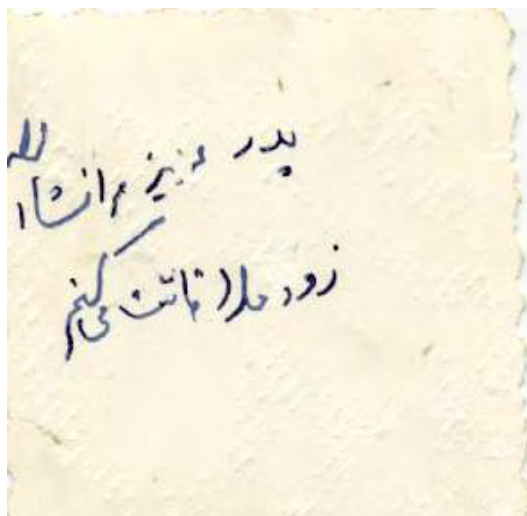 پدر عزیزم انشاالله
زود ملاقاتت می‌کنم